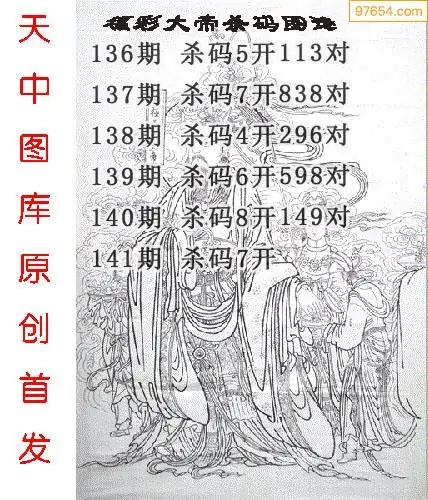 97654.com
福彩大帝杀码图迷
136期 杀码5开113对
137期 杀码7开838对
138期 杀码4开296对
139期 杀码6开598对
140期 杀码8开149对
141期 杀码7开
天中图库原创首发